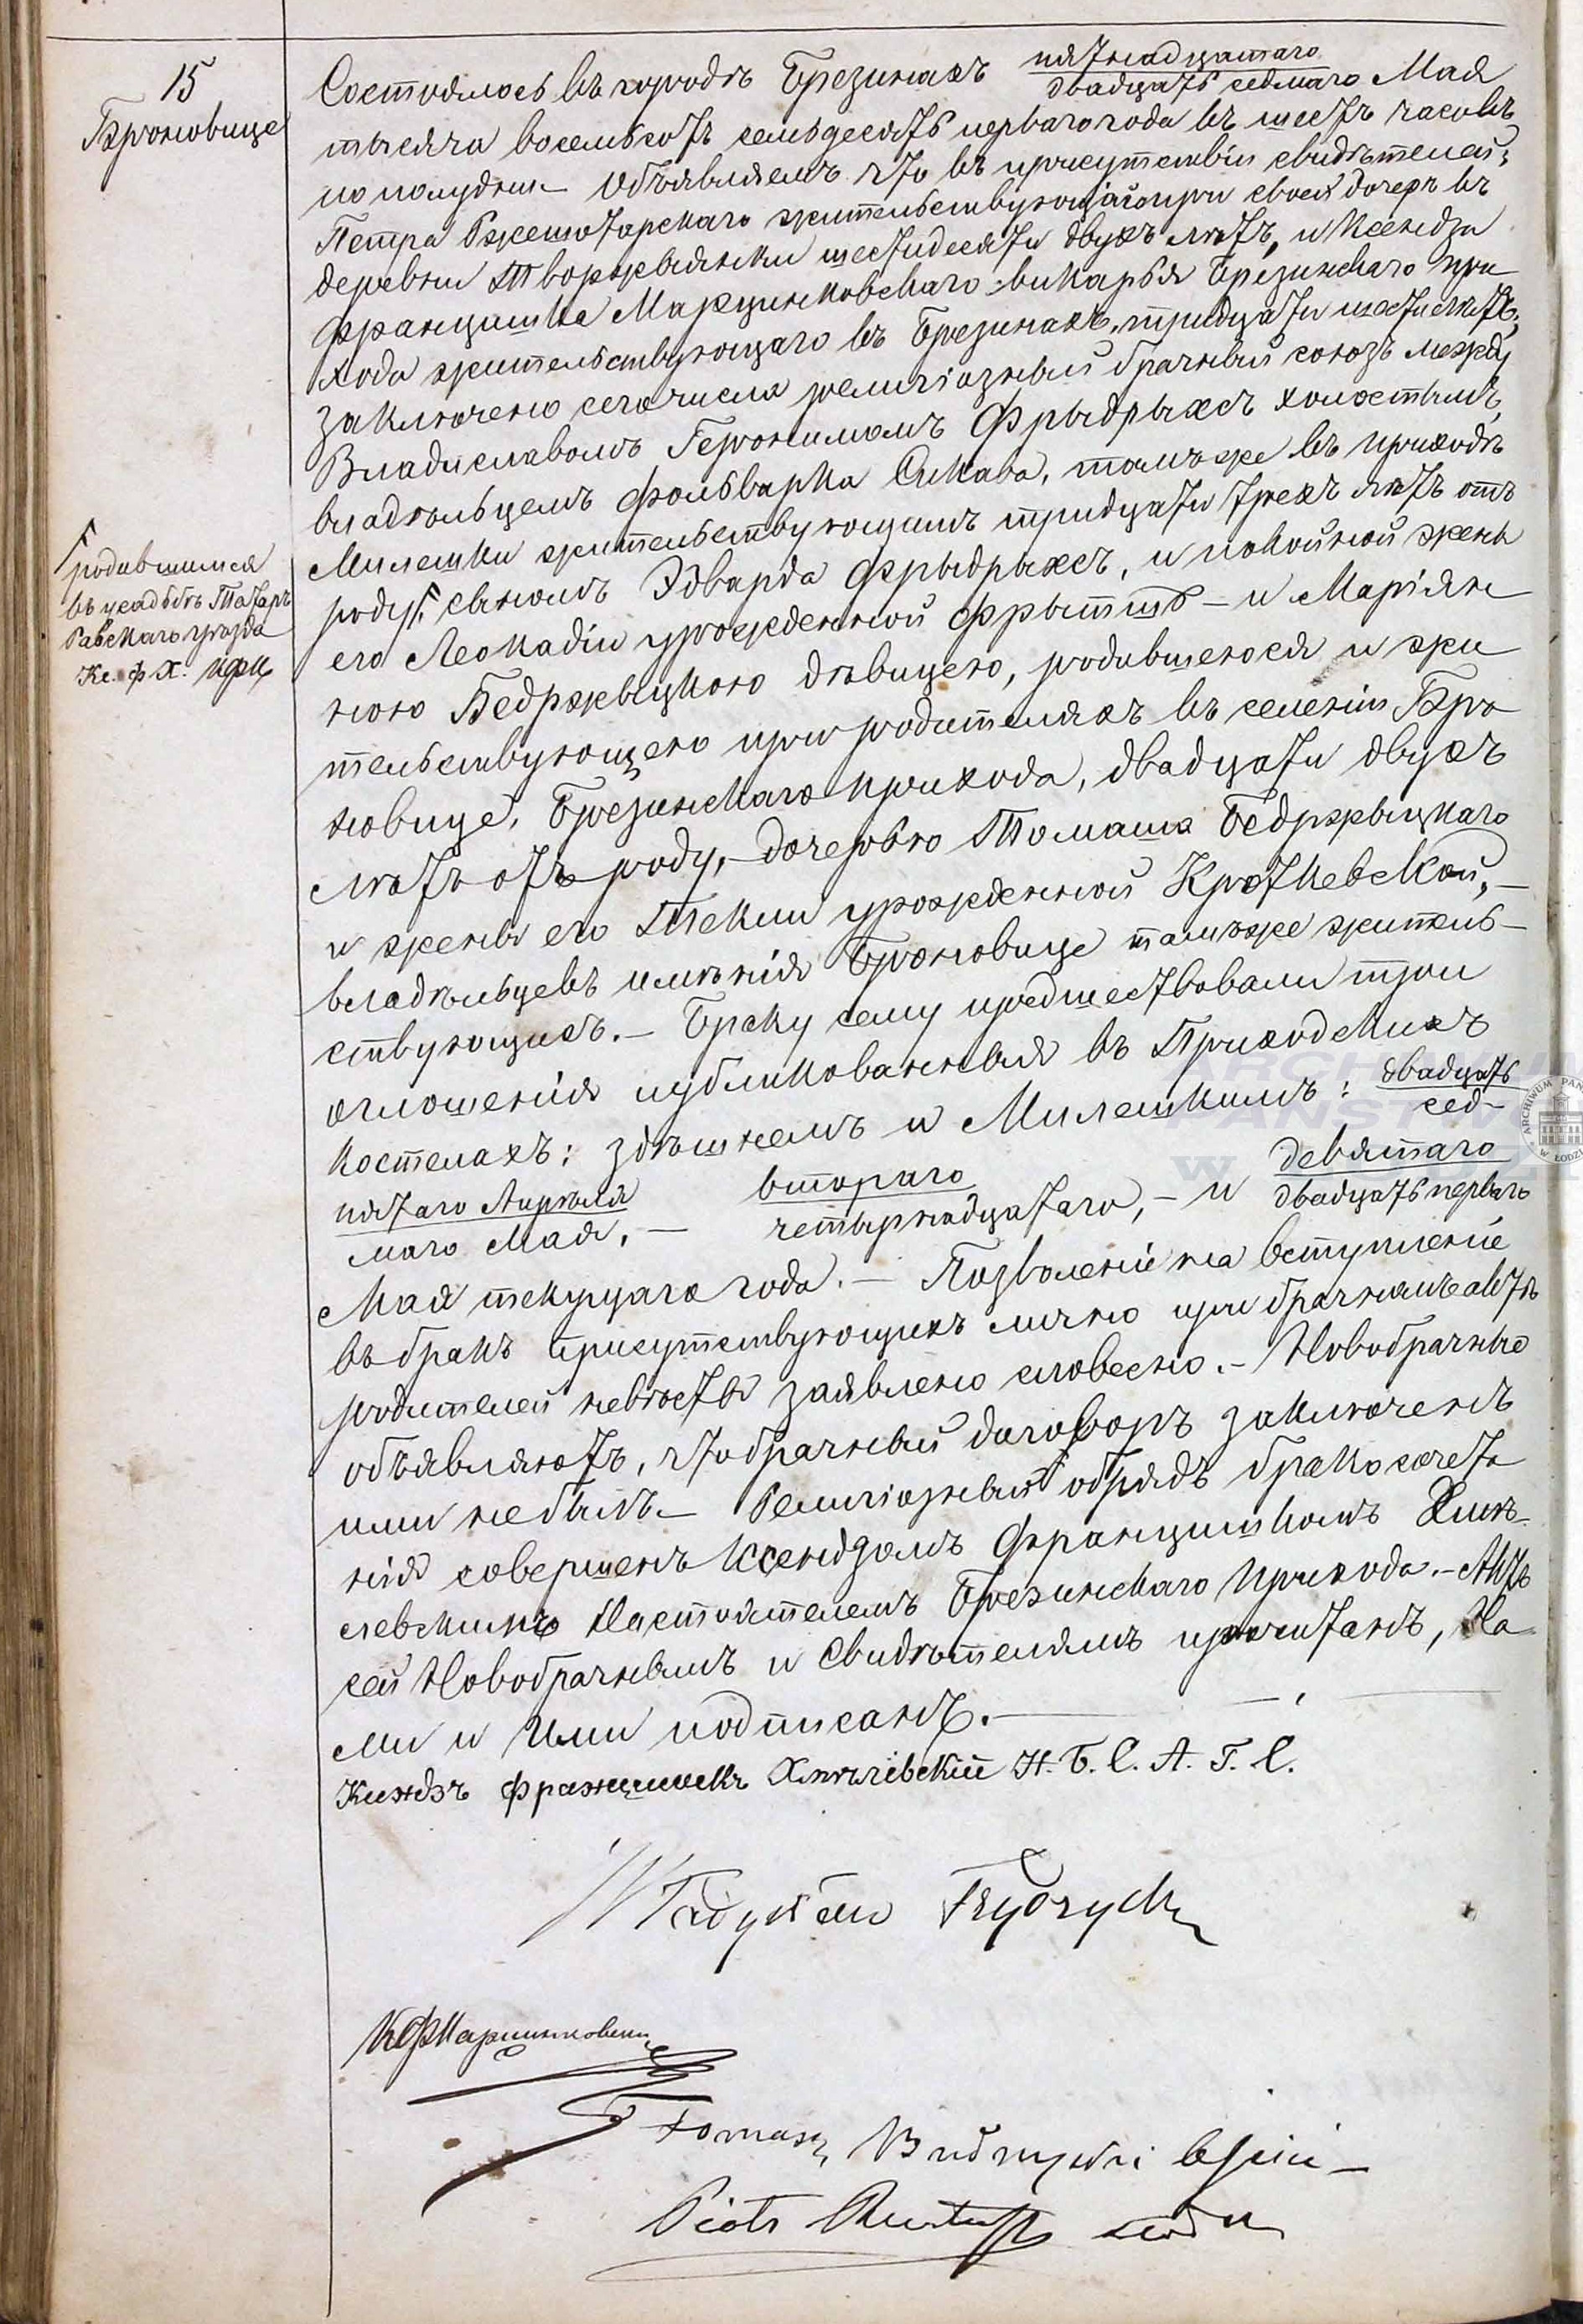 15
Брюновице
Состоялось въ городѣ Брезинахъ пятнадцатаго
двадцать седмаго Мая
тысяча восемьсотъ семьдесятъ перваго года въ шесть часовъ
по полудни. Объявляемъ что въ присутствіи свидѣтелей:
Петра Ржешотарскаго жительствующаго при своей дочерѣ въ
деревни Творжыянки шестидесяти двухъ лѣтъ, и Ксендза
Францишка Марцинковскаго викарья Брезинскаго при
хода жительствующаго въ Брезинахъ, тридцати шести лѣтъ;
заключено сего числа религіозный брачный союзъ между
Владиславомъ Геронимомъ Фрыдрыхсъ холостымъ,
владѣльцемъ фольварка Сикава, тамъ же въ приходѣ
Милешки жительствующимъ тридцати трехъ лѣтъ отъ
роду, сыномъ Эдварда Фрыдрыхсъ, и покойной жены
его Леокадіи урожденной Фрытшъ — и Маріян
ною Бедржыцкою дѣвицею, родившеюся и жи
тельствующею при родителяхъ въ селеніи Брю
новице, Брезинскаго прихода, двадцати двухъ
лѣтъ отъ роду, — дочерью Томаша Бедржыцкаго
и жены его Текли урожденной Кроткевской, —
владѣльцевъ имѣнія Брюновице тамъ же житель —
ствующихъ. — Браку сему предшествовали три
оглошенія публикованныя въ Приходскихъ
костелахъ: здѣшнемъ и Милешкимъ: двадцать
сед —
пятаго Апрѣля
маго Мая, — втораго
четырнадцатаго, — и девятаго
двадцать перваго
Мая текущаго года. — Позволеніе на вступленіе
въ бракъ присутствующихъ лично при брачномъ актѣ
родителей невѣсты заявлено словесно. — Новобрачные
объявляютъ, что брачный договоръ заключенъ
ими не былъ. — Религіозный обрядъ бракосочета
нія совершенъ Ксендзомъ Францишкомъ Хмѣ —
левскимъ Настоятелемъ Брезинскаго Прихода. — Актъ
сей Новобрачнымъ и Свидѣтелямъ прочитанъ, На
ми и Ими подписанъ. —
родившимся
въ усадьбѣ Татаръ
Равскаго уѣзда
Кс. Ф. Х.
Ксендзъ Францишекъ Хмѣлевскій Н. Б. С. А. Г. С.
Władysław Frydrychs
К Ф Марцинковски
Tomasz
Piotr